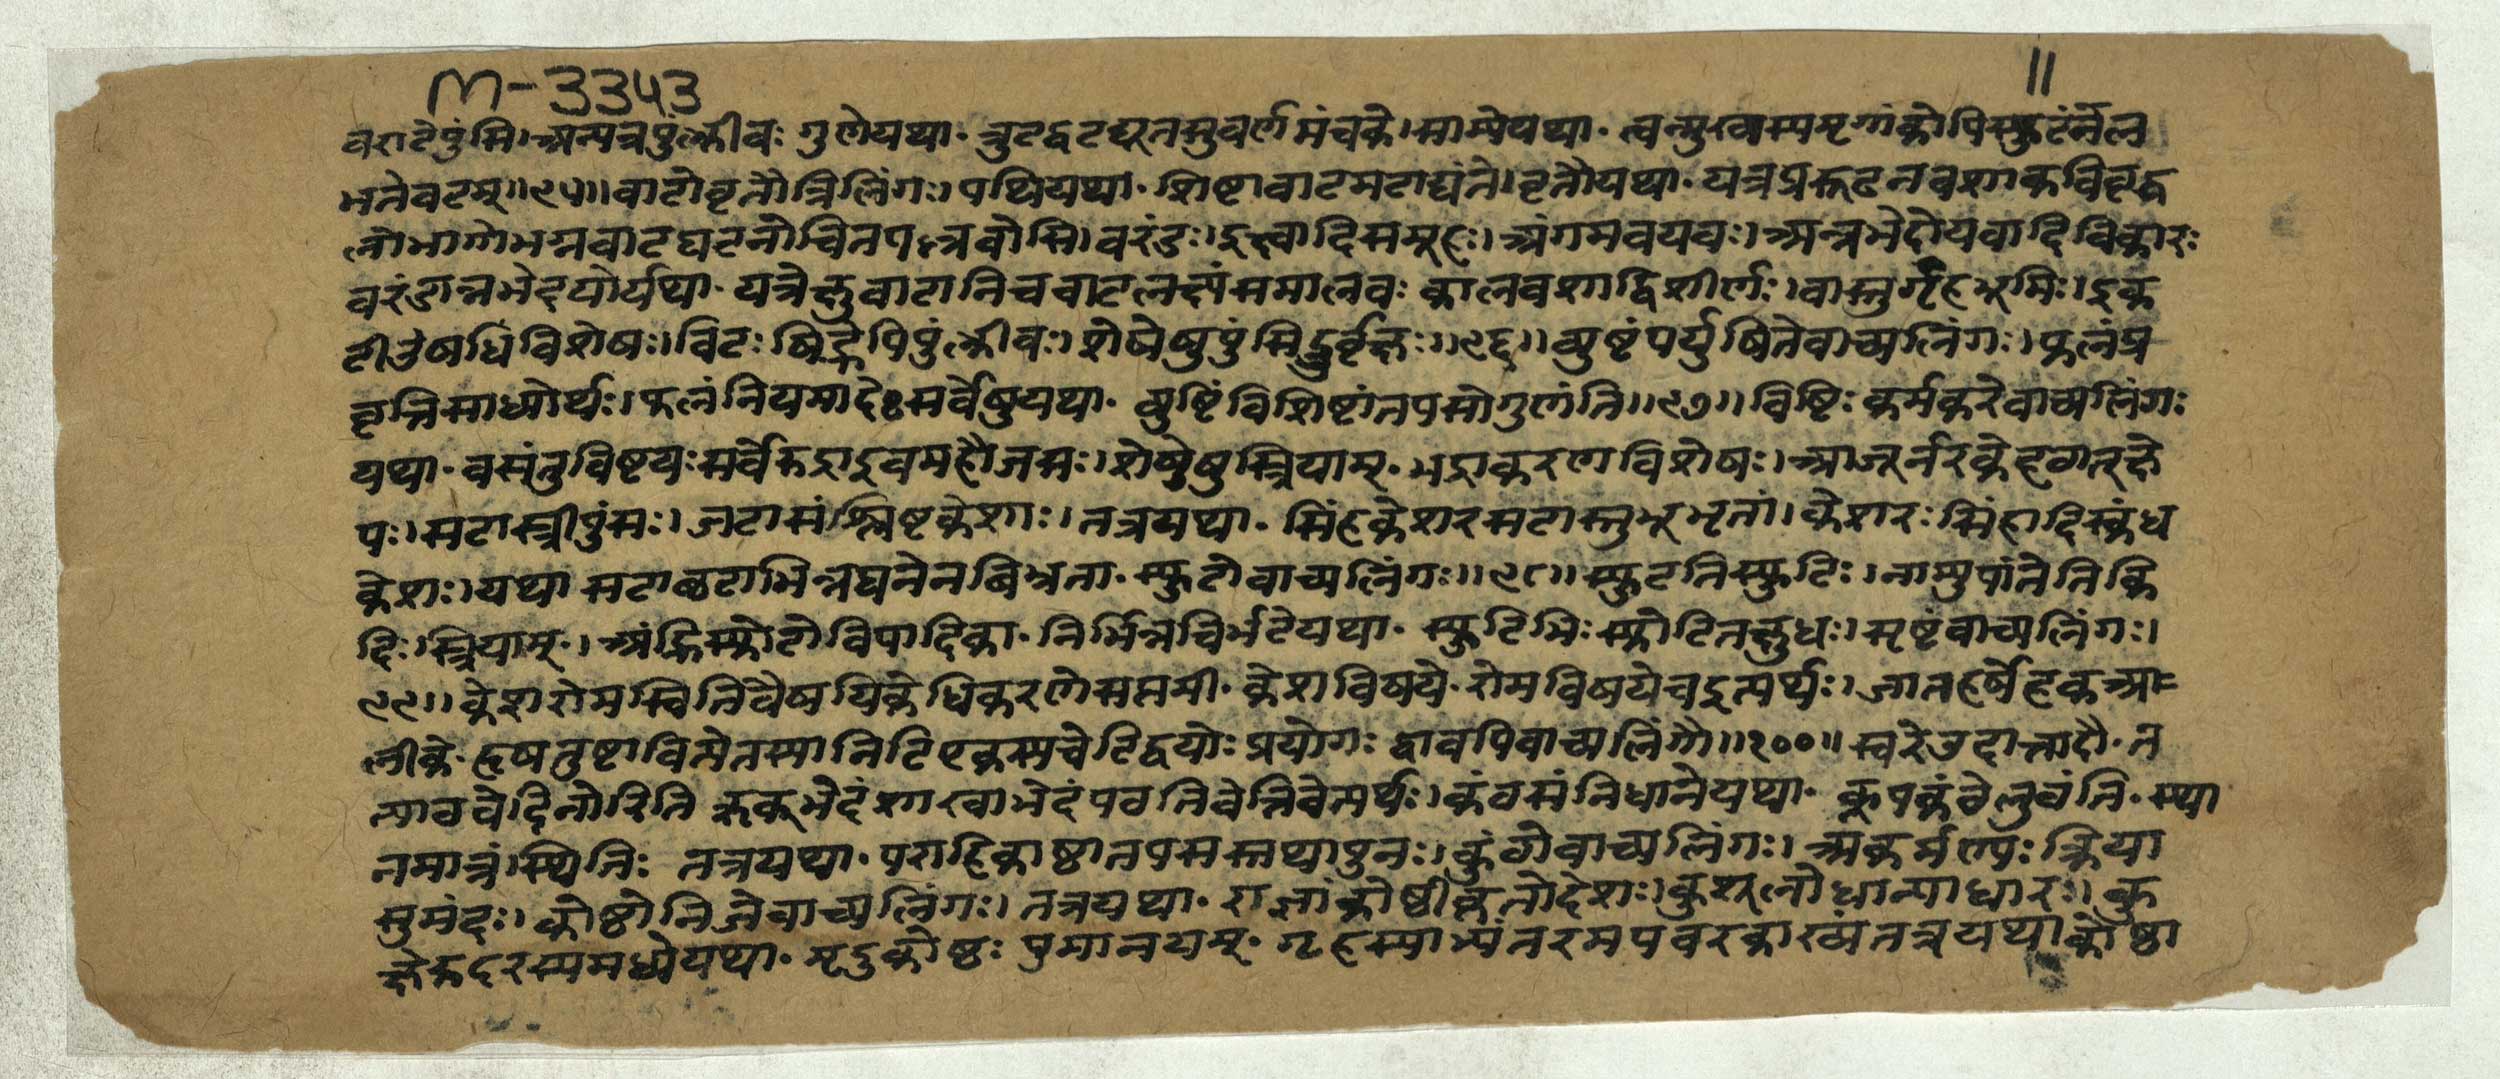 M-3343
॥
वराटेपुंसि। अन्यत्रपुंक्लीवः गुणेयथा. त्रुटद्वटद्यूतसुवर्णमंचके। साम्येयथा. त्वन्मुखास्यमृगांकोपिस्फुटंर्नैल
भतेवटम्॥९५॥ वाटोवृतौत्रिलिंगः। पथियथा. शिष्टावाटमटाद्यंते। वृतौयथा. यत्रप्ररूढनवशाकविवृद्ध
लोभागोभग्नवाटघटनोचित वोसि। वरंडः। इक्ष्वादिसमूहः। अंगमवयवः। अन्नभेदोयवादिविकारः
वरंडान्नभेदयोर्यथा. यत्रेक्षुवाटानिचवाटलक्ष्यंसमालवः कालवशाद्विशीर्णः। वास्तुर्गृहभूमिः। इक्क
टीउषधिविशेषः। विटः खिड्गेपिपुंक्लीवः। शेषेषुपुंसिद्रुर्वृक्षः॥९६॥ व्युष्टंपर्युषितेवाच्यलिंगः। फलंप्र
वृत्तिसाध्योर्थः। फलंनियमादेः सर्वेषुयथा. व्युष्टिंविशिष्टांतपसोगुणंति॥९७॥ विष्टिः कर्मकरेवाच्यलिंगः
यथा. वसंतुविष्टयःसर्वेरुद्राइवमहौजसः। शेषेषुस्त्रियाम्. भद्राकरणविशेषः। आजूर्नरकेहठात्क्षे
पः। सटास्त्रीपुंसः। जटासंश्लिष्टकेशाः। तत्रयथा. सिंहकेशरसटास्तुभूभृतां। केशरः सिंहादिस्कंध
केशः। यथा सटाछटाभिन्नघनेनबिभ्रता. स्फुटोवाच्यलिंगः॥९८॥ स्फुटतिस्फुटिः। नाम्युपांतेतिकि
दिः। स्त्रियाम्। अंह्रिस्फोटोविपादिका. निर्भिन्नचिर्भटेयथा. स्फुटिभिः स्फोटितक्षुधः। सृष्टंवाच्यलिंगः।
९९॥ केशरोमस्वितिवैषयिकेधिकरणेसप्तमी. केशविषये. रोमविषयेचइत्यर्थः। जातहर्षेहृकआ=
लीके. हृषतुष्टावित्येतस्यानिटिएकस्यचेटिद्वयोः प्रयोगः द्वावपिवाच्यलिंगौ॥१००॥ स्वरेउदात्तादौ. त
त्पाठवेदिनोरिति ऋक्भेदंशाखाभेदंपठतिवेत्तिवेत्यर्थः। कंठसंनिधानेयथा. कूपकंठेलुठंति. स्था
नमात्रंस्थितिः तत्रयथा. पराहिकाष्ठातपसस्तथापुनः। कुंठोवाच्यलिंगः। अकर्मण्यः क्रिया
सुमंदः। कोष्ठोनिजेवाच्यलिंगः। तत्रयथा. राज्ञांकोष्ठीकृतोदेशः। कुशूलोधान्याधारः। कु
क्षेरुदरस्यमध्येयथा. मृदुकोष्ठः पुमानयम्. गृहस्याभ्यंतरमपवरकाख्यंतत्रयथाकोष्ठा